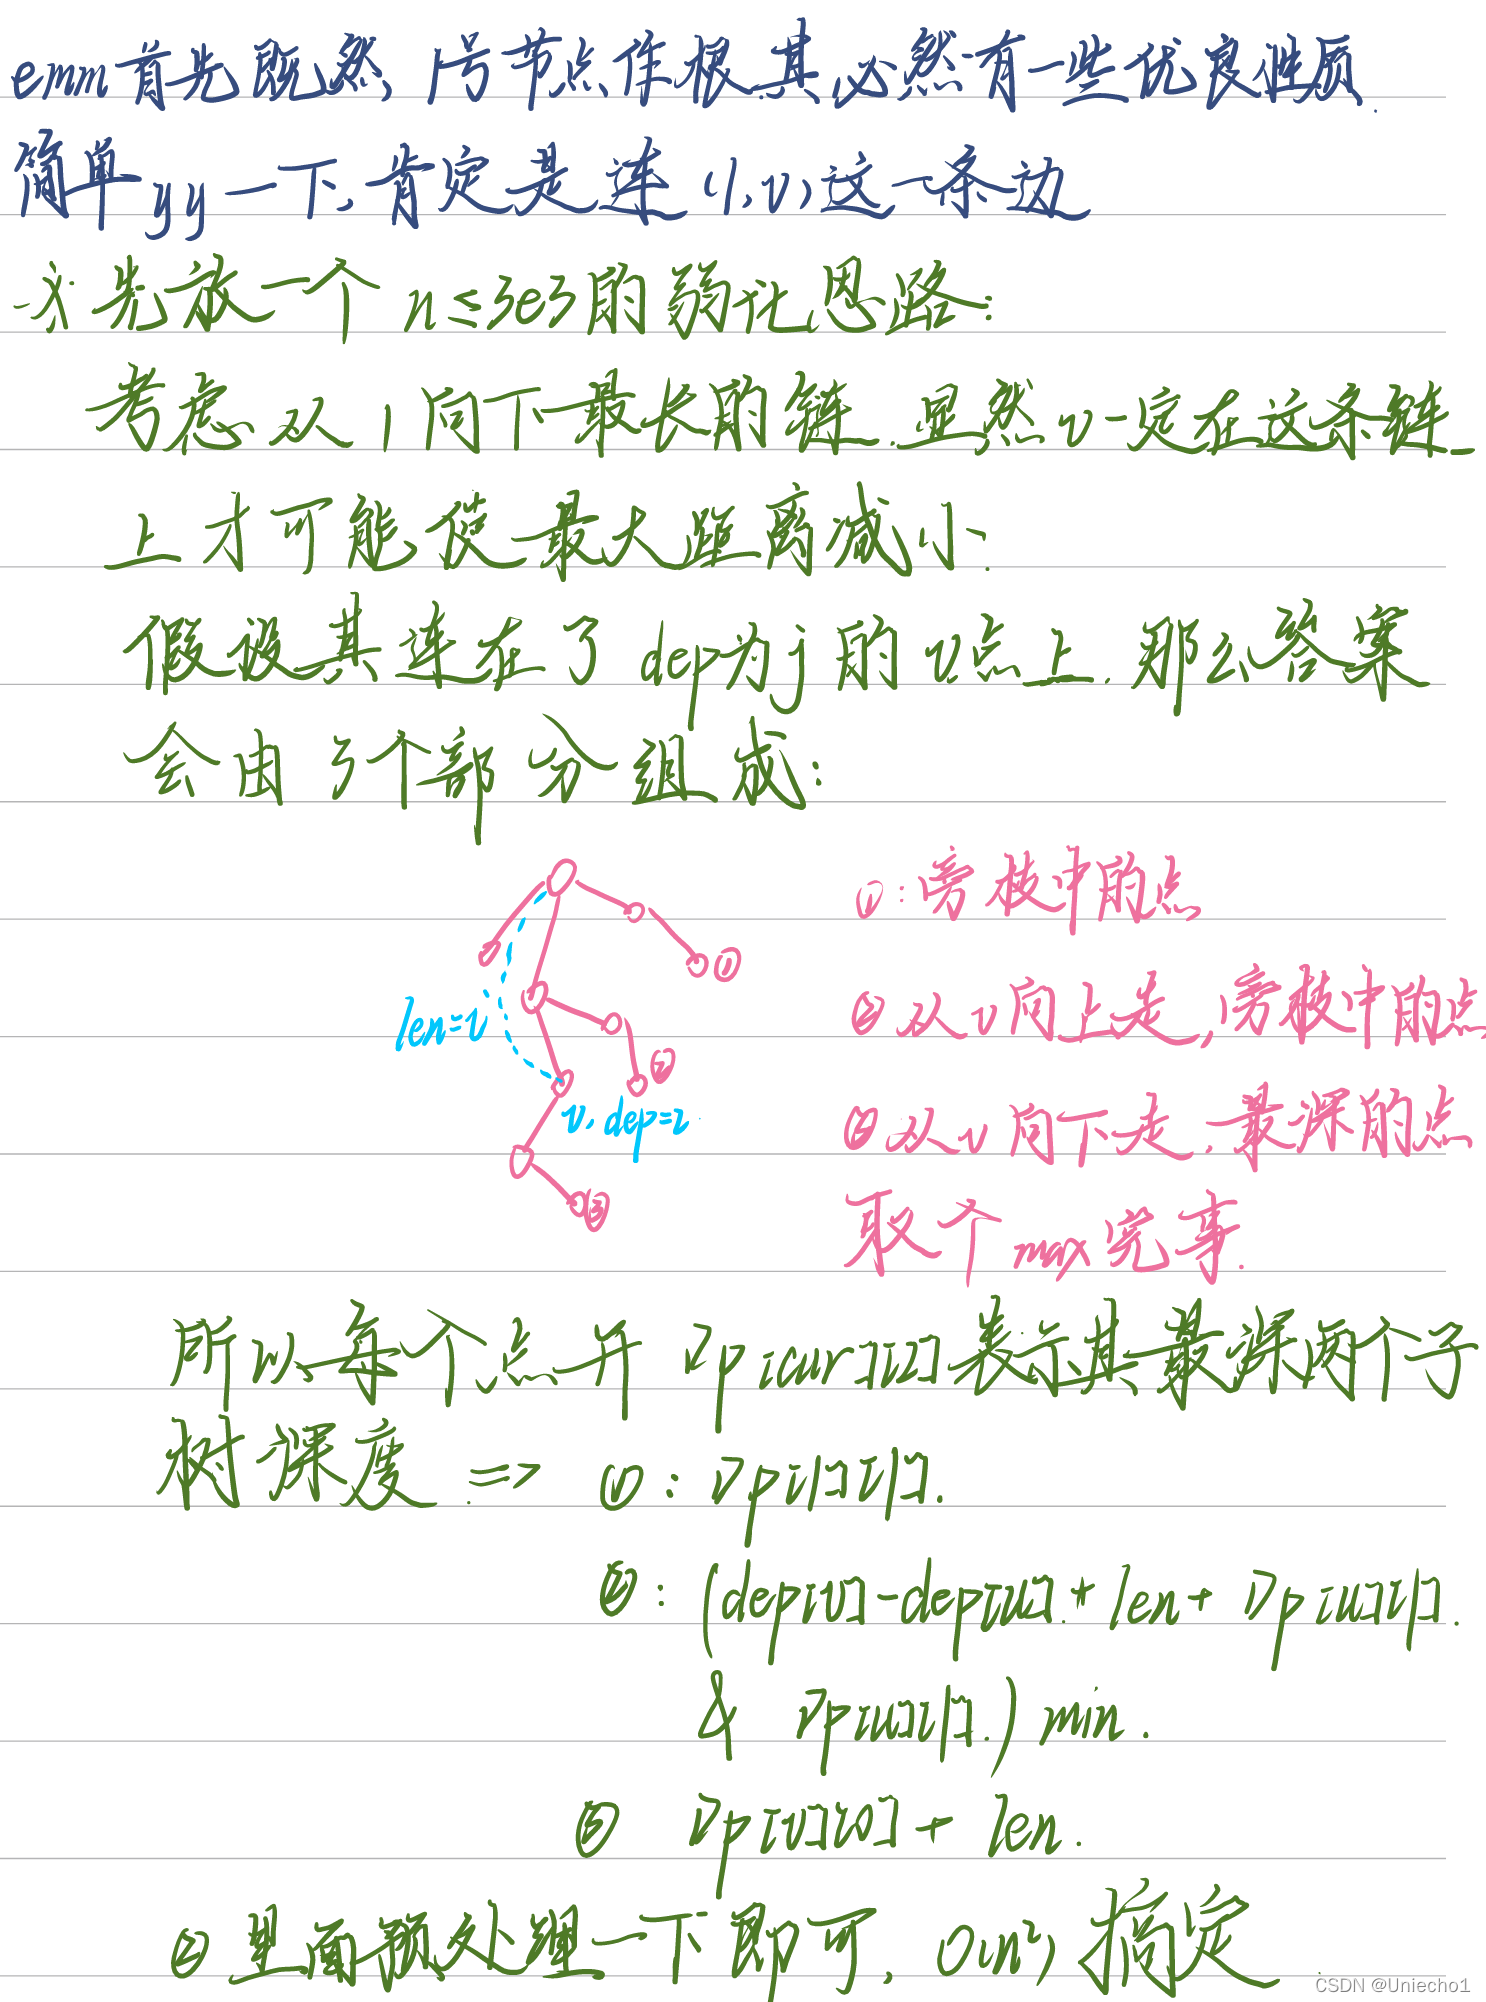 emm首先既然, 1号节点作根.其必然有一些优良性质.
简单yy一下,肯定是连(1,v)这一条边
※先放一个n≤3e3的弱化思路:
考虑从1向下最长的链.显然v一定在这条链
上才可能使最大距离减小.
假设其连在了dep为j的v点上.那么答案
会由3个部分组成:
①:旁枝中的点
②从v向上走,旁枝中的点
③从v向下走,最深的点
取个max完事.
len=i
v,dep=2
①
②
③
所以每个点开Dp[cur][2]表示其最深两个子
树深度. => ①: Dp[1][1].
②: (dep[v]-dep[u]+len+Dp[u][1].
& Dp[u][1].) min.
③ Dp[v][0]+len.
②里面预处理一下即可, O(n²)搞定.
CSDN @Uniecho1